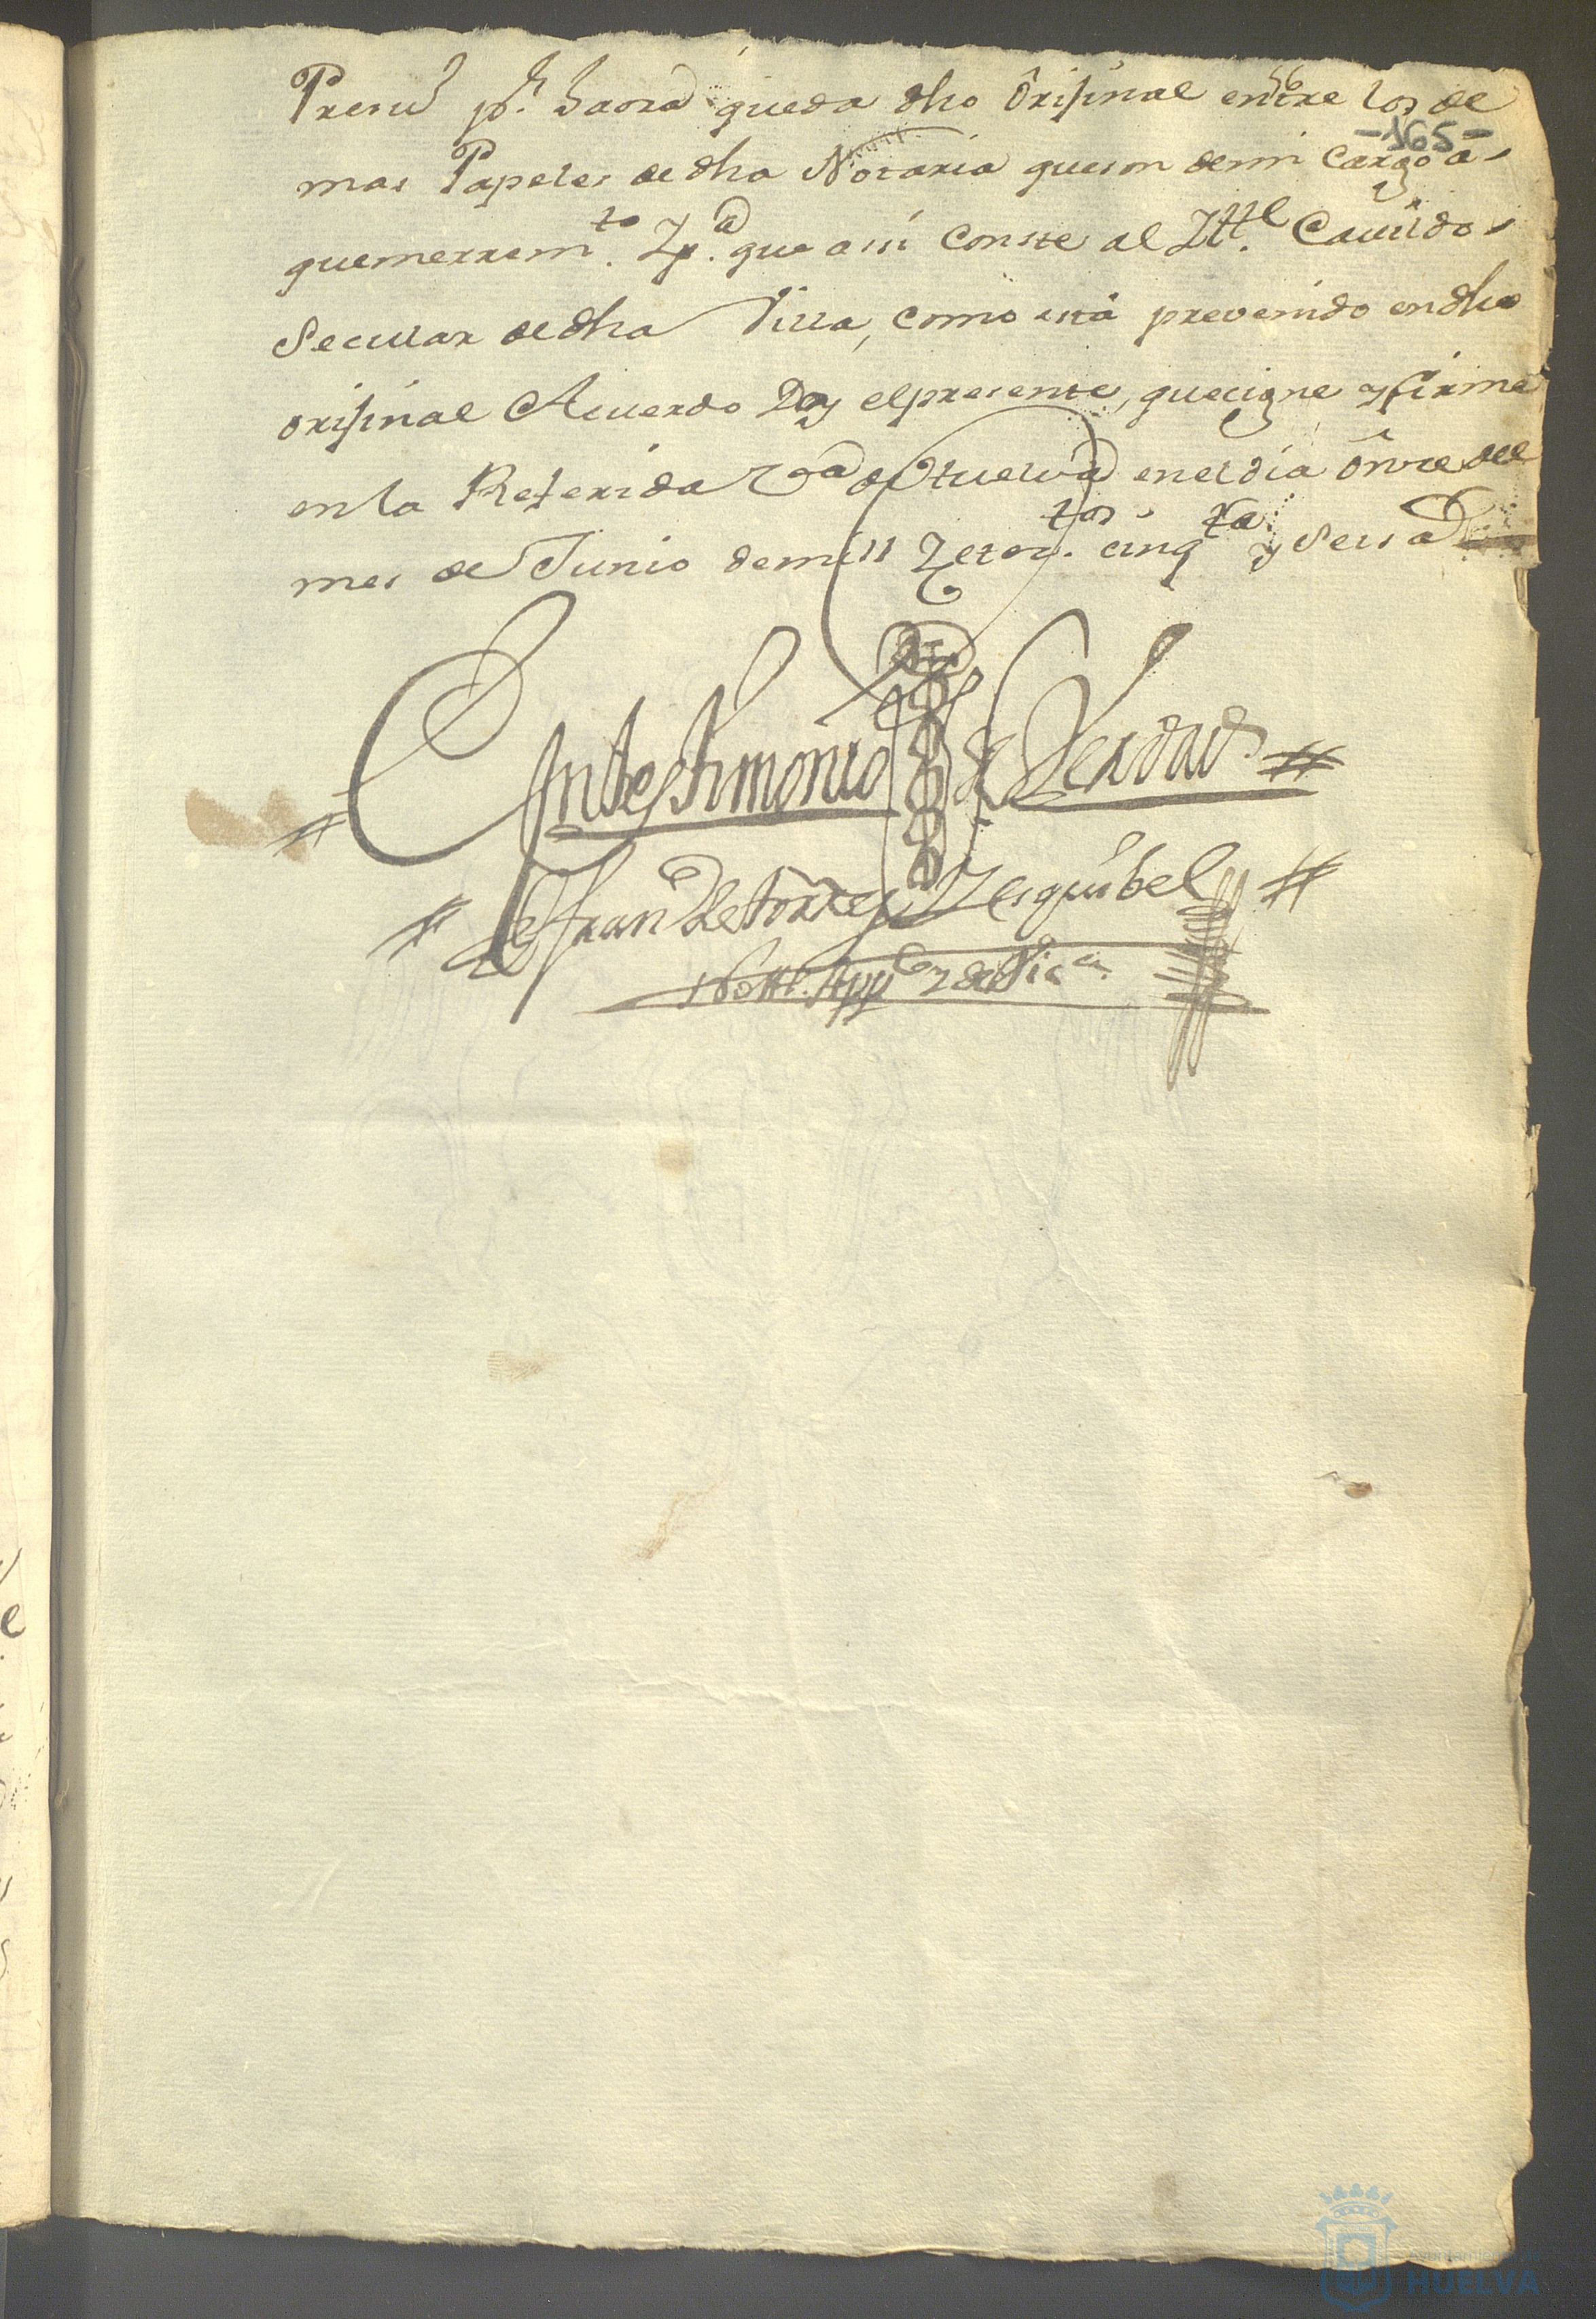 56
-165-
Presu pr. haora queda dho Orijinal entre los de
mas Papeles de dha Notaria queson demi Cargo a
quemerremto. Ypa. que assi Conste al Ilte. Cavildo
Secular de dha Villa, como está prevenido endho
orijinal Acuerdo Doy elpresente, quecigne y firme
enla Referida Va de Huelva eneldia Onse del
mes de Junio demill Zetezos. cinqta y Seis a
Entestimonio de Verdad
Fran de torres Yesquibel
Nott. Appco y de Vica.
HUELVA